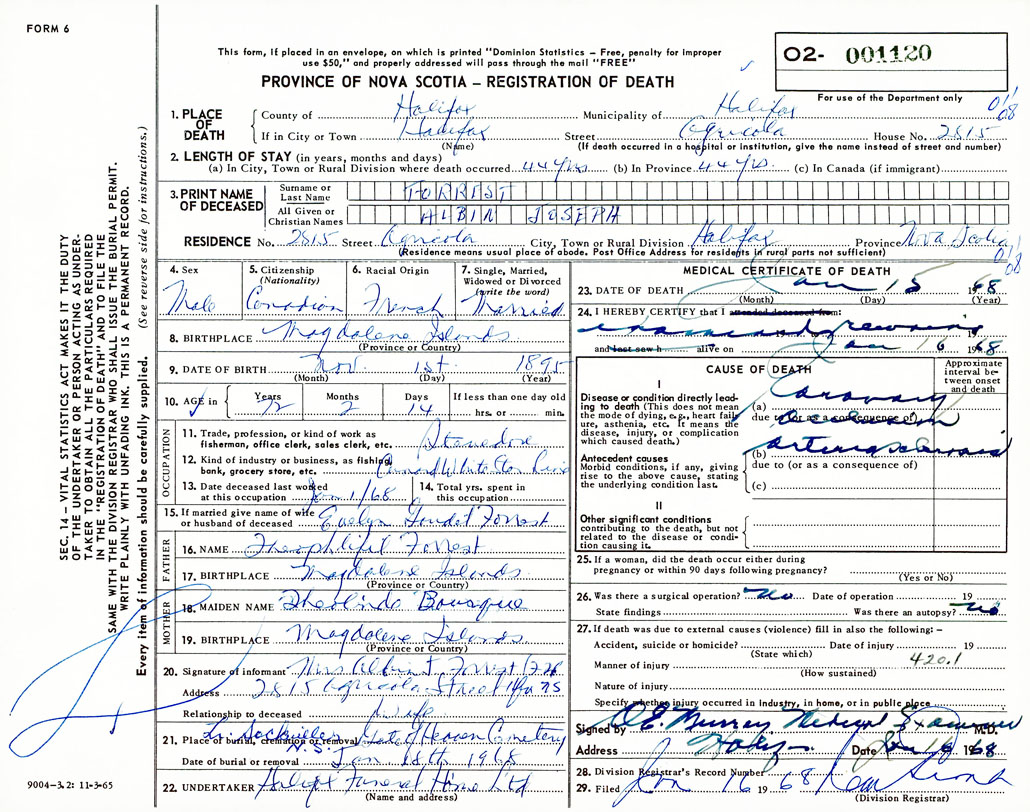 FORM 6
This form, if placed in an envelope, on which is printed "Dominion Statistics – Free, penalty for improper
use $50," and properly addressed will pass through the mail "FREE"
PROVINCE OF NOVA SCOTIA – REGISTRATION OF DEATH
O2- 001120
For use of the Department only
1. PLACE OF DEATH
County of Halifax Municipality of Halifax
If in City or Town Halifax Street Agricola House No. 2815
(Name) (If death occurred in a hospital or institution, give the name instead of street and number)
2. LENGTH OF STAY (in years, months and days)
(a) In City, Town or Rural Division where death occurred 44 yrs. (b) In Province 44 yrs. (c) In Canada (if immigrant)
3. PRINT NAME OF DECEASED
Surname or Last Name FORREST
All Given or Christian Names ALBIN JOSEPH
RESIDENCE No. 2815 Street Agricola City, Town or Rural Division Halifax Province Nova Scotia
(Residence means usual place of abode. Post Office Address for residents in rural parts not sufficient)
4. Sex Male
5. Citizenship (Nationality) Canadian
6. Racial Origin French
7. Single, Married, Widowed or Divorced (write the word) Married
8. BIRTHPLACE Magdalene Islands
(Province or Country)
9. DATE OF BIRTH Nov. 1st 1895
(Month) (Day) (Year)
10. AGE in Years 72 Months 2 Days 14 If less than one day old hrs. or min.
OCCUPATION
11. Trade, profession, or kind of work as
fisherman, office clerk, sales clerk, etc. Stevedore
12. Kind of industry or business, as fishing,
bank, grocery store, etc.
13. Date deceased last worked
at this occupation Jan 1/68
14. Total yrs. spent in
this occupation
15. If married give name of wife
or husband of deceased Evelyn Goudet Forrest
FATHER
16. NAME Forrest
17. BIRTHPLACE Magdalene Islands
(Province or Country)
MOTHER
18. MAIDEN NAME
19. BIRTHPLACE Magdalene Islands
(Province or Country)
20. Signature of informant Mrs Forrest
Address 2815 Agricola Street
Relationship to deceased wife
21. Place of burial, cremation or removal Cemetery
Date of burial or removal Jan. 18th 1968
22. UNDERTAKER Halifax Funeral Home Ltd
(Name and address)
MEDICAL CERTIFICATE OF DEATH
23. DATE OF DEATH Jan 15 1968
(Month) (Day) (Year)
24. I HEREBY CERTIFY that I attended deceased from:
and last saw h alive on Jan 16 1968
CAUSE OF DEATH
Approximate interval between onset and death
I
Disease or condition directly lead-
ing to death (This does not mean
the mode of dying, e.g., heart fail-
ure, asthenia, etc. It means the
disease, injury, or complication
which caused death.)
(a) Coronary
due to (or as a consequence of)
occlusion
Antecedent causes
Morbid conditions, if any, giving
rise to the above cause, stating
the underlying condition last.
(b)
due to (or as a consequence of)
(c)
II
Other significant conditions
contributing to the death, but not
related to the disease or condi-
tion causing it.
25. If a woman, did the death occur either during
pregnancy or within 90 days following pregnancy?
(Yes or No)
26. Was there a surgical operation? No Date of operation 19
State findings Was there an autopsy? No
27. If death was due to external causes (violence) fill in also the following: –
Accident, suicide or homicide? Date of injury 19
(State which)
Manner of injury 420.1
(How sustained)
Nature of injury
Specify whether injury occurred in industry, in home, or in public place
Signed by Murray Medical Examiner M.D.
Address Date Jan 16 1968
28. Division Registrar's Record Number
29. Filed Jan 16 1968
(Division Registrar)
SEC. 14 – VITAL STATISTICS ACT MAKES IT THE DUTY
OF THE UNDERTAKER OR PERSON ACTING AS UNDER-
TAKER TO OBTAIN ALL THE PARTICULARS REQUIRED
IN THE "REGISTRATION OF DEATH" AND TO FILE THE
SAME WITH THE DIVISION REGISTRAR WHO SHALL ISSUE THE BURIAL PERMIT.
WRITE PLAINLY WITH UNFADING INK. THIS IS A PERMANENT RECORD.
Every item of information should be carefully supplied. (See reverse side for instructions.)
9004-3.2: 11-3-65